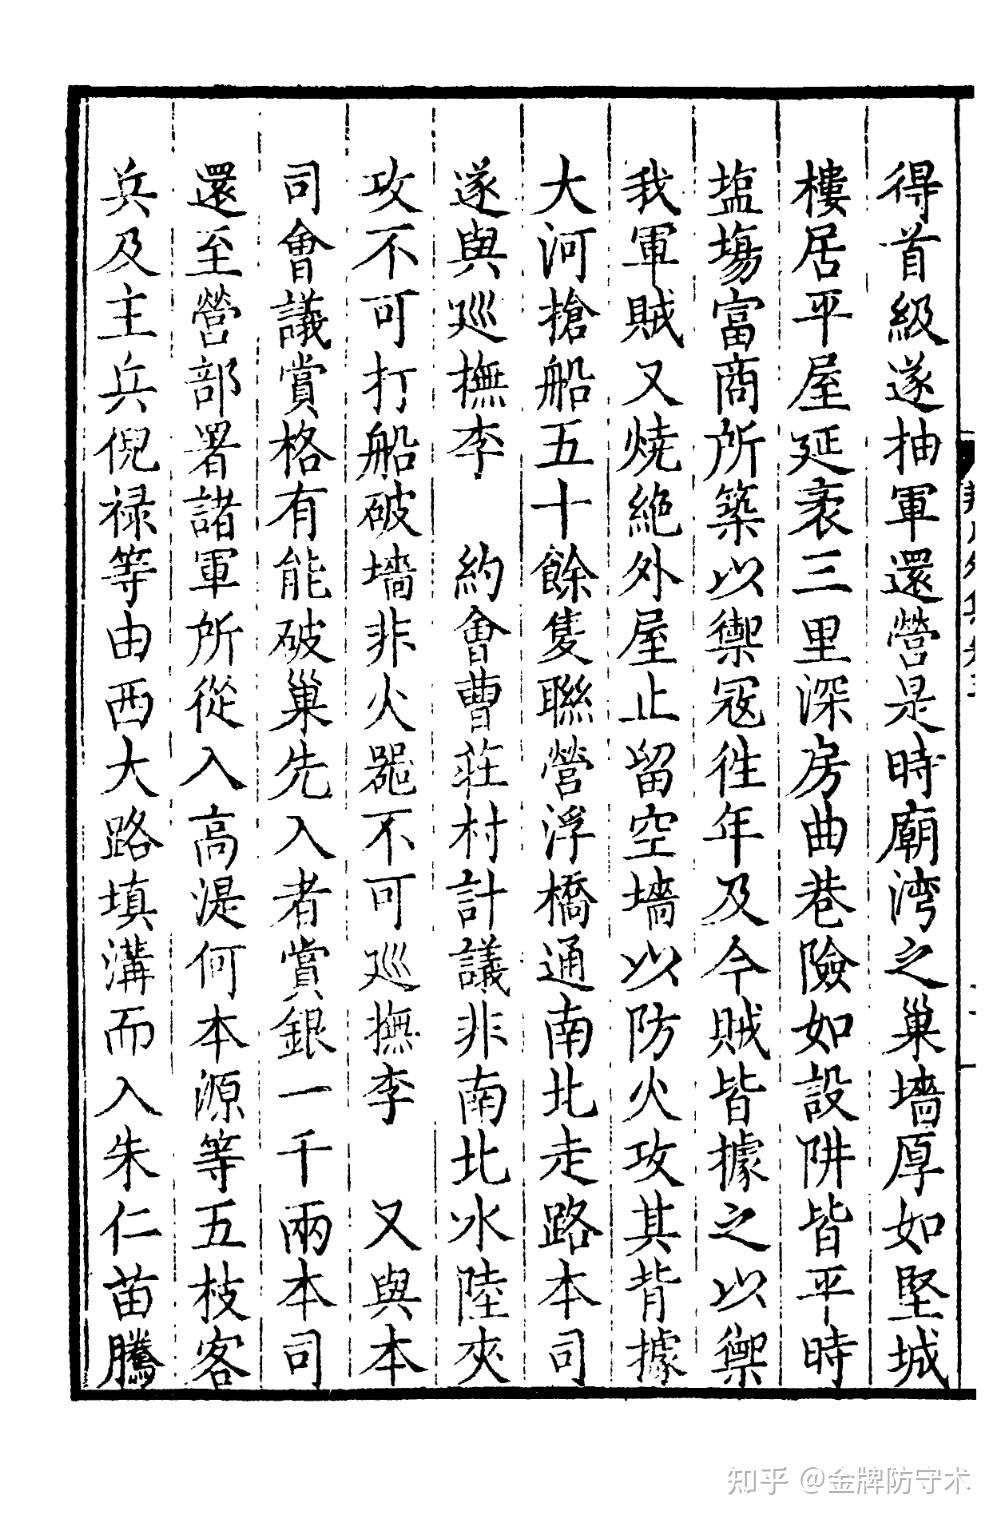 得首級遂抽軍還營是時廟湾之巢墻厚如堅城
樓居平屋延袤三里深房曲巷險如設阱皆平時
塩塲富商所築以禦冦徃年及今賊皆據之以禦
我軍賊又燒絶外屋止留空墻以防火攻其背據
大河搶船五十餘隻聯營浮橋通南北走路本司
遂與廵撫李　約會曹莊村計議非南北水陸夾
攻不可打船破墻非火噐不可廵撫李　又與本
司會議賞格有能破巢先入者賞銀一千兩本司
還至營部署諸軍所從入高湜何本源等五枝客
兵及主兵倪禄等由西大路填溝而入朱仁苗騰
知乎 @金牌防守术